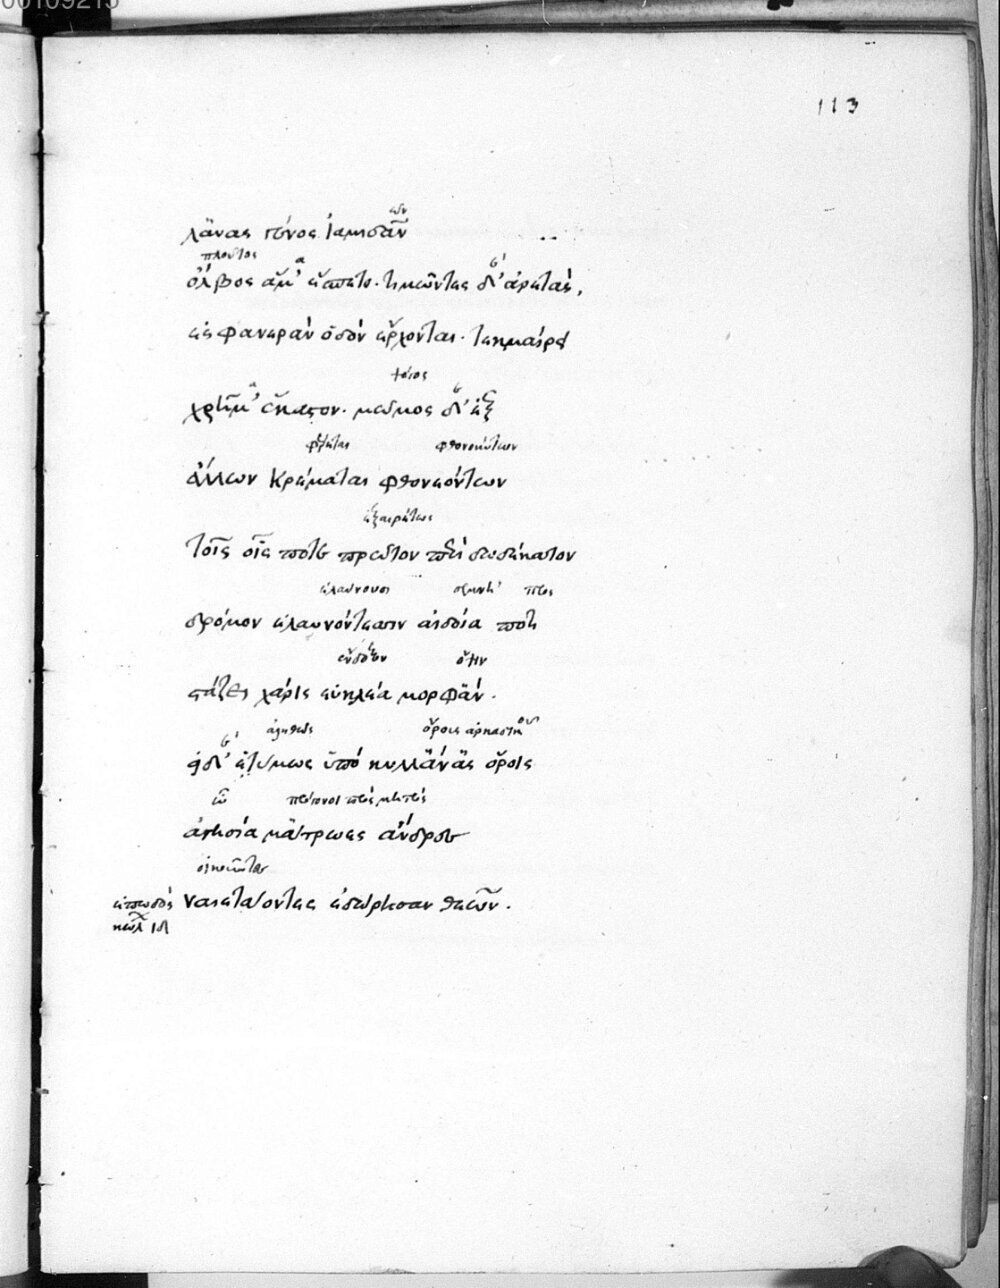 00109215
113
ων
λᾶνας γένος Ἰαμιδᾶν
πλοῦτος
ὄλβος ἅμ' ἕσπετο· τιμῶντες δ' ἀρετὰς,
ἐς φανερὰν ὁδὸν ἔρχονται· τεκμαίρει
μῶμος
χρῆμ' ἕκαστον· μῶμος δ' ἐξ
φθονούντων
ἄλλων κρέματαται φθονεόντων
ἐξαιρέτως
τοῖς οἷς ποτε πρῶτον περὶ δωδέκατον
ἐλαύνουσι σεμνὴ
δρόμον ἐλαυνόντεσσιν αἰδοία ποτι
εὔδοξον ὄψιν
στάζει χάρις εὐκλέα μορφάν.
ἀληθῶς ὄροις
εἰ δ' ἐτύμως ὑπὸ κυλλάνας ὄροις
ὦ
ἁγησία μάτρωες ἄνδρες
οἰκοῦντες
ἐπῳδὸς ναιετάοντες ἐδώρησαν θεῶν.
κώλ ιδ